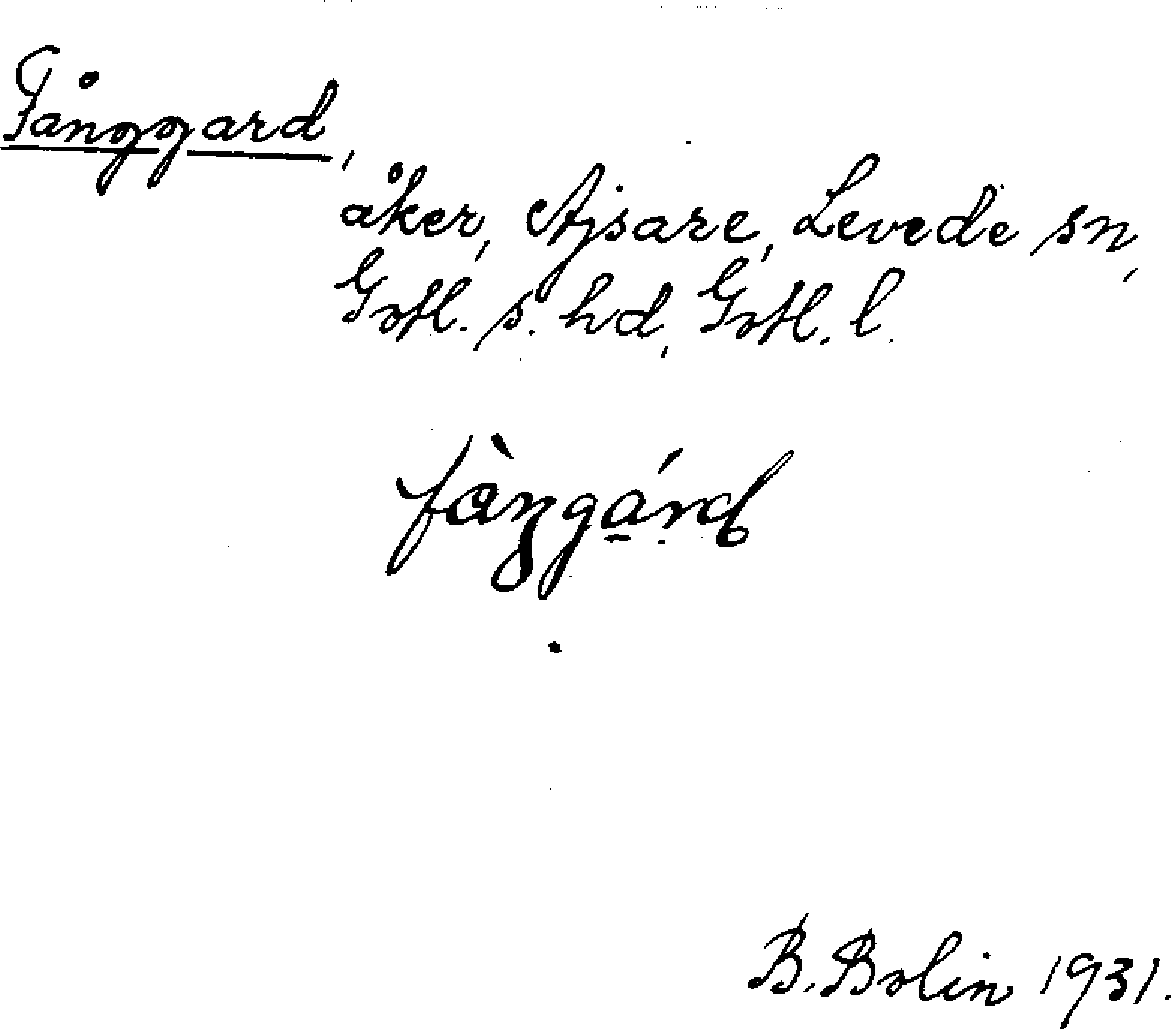 Fånggard,
åker, Ajsare, Levede sn,
Gotl. s. hd, Gotl. l.
fàŋgárd
B. Bolin 1931.